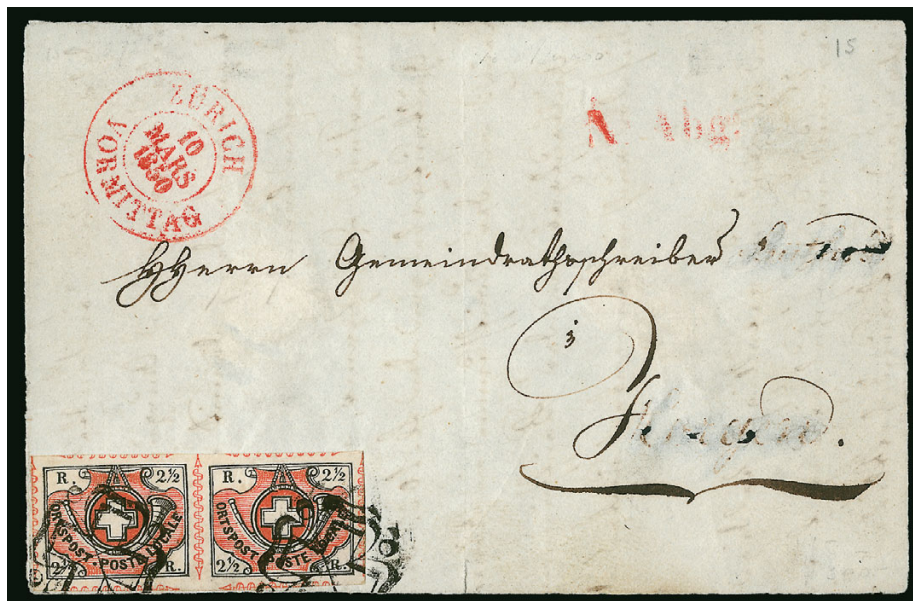 15
ZÜRICH
10
MARS
1850
VORMITTAG
N. Abg.
HHerrn Gemeindrathsschreiber
R. 2½
ORTSPOST · POSTE LOCALE
2½ R.
R. 2½
ORTSPOST · POSTE LOCALE
2½ R.